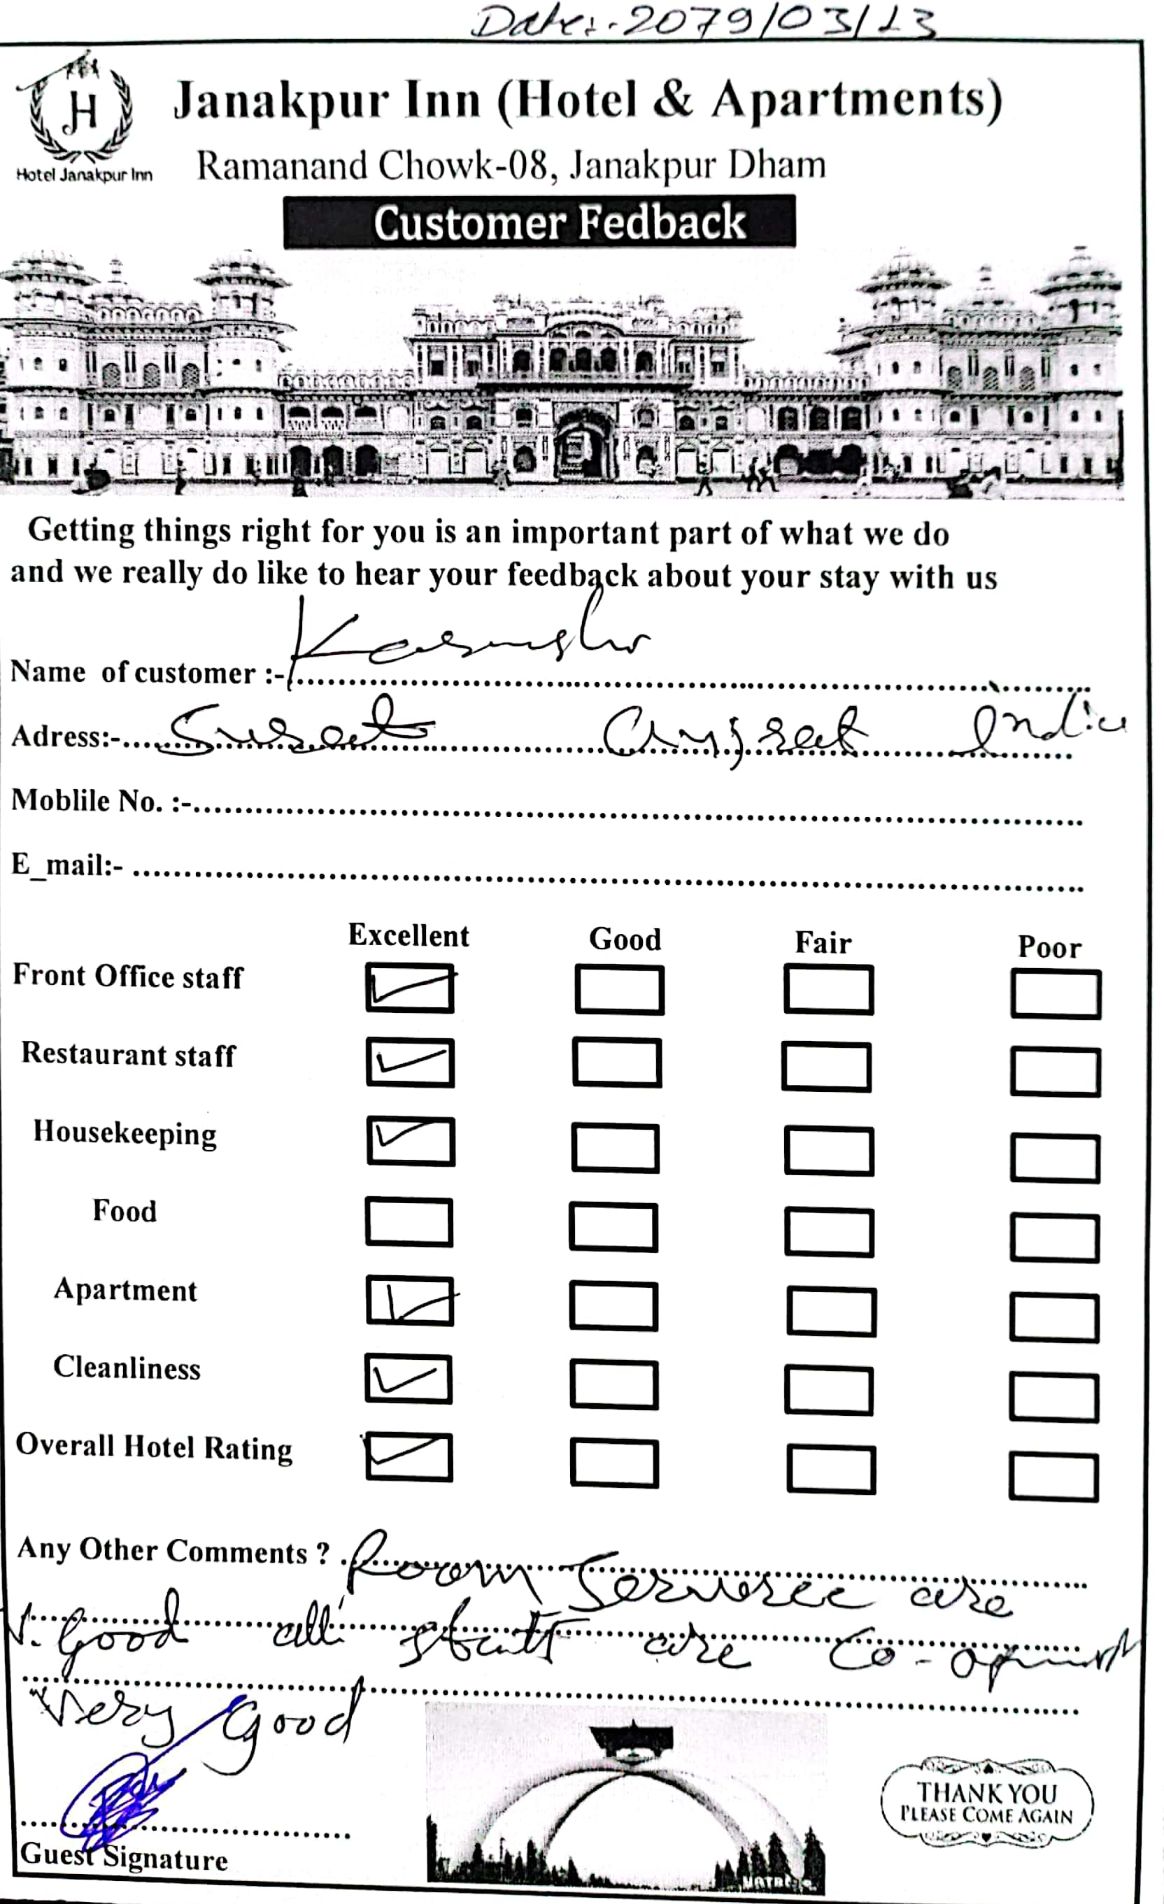 Date:-2079/03/13
H
Hotel Janakpur Inn
Janakpur Inn (Hotel & Apartments)
Ramanand Chowk-08, Janakpur Dham
Customer Fedback
Getting things right for you is an important part of what we do
and we really do like to hear your feedback about your stay with us
Name of customer :-
Adress:- Surat Gujrat India
Moblile No. :-
E_mail:-
Excellent Good Fair Poor
Front Office staff
Restaurant staff
Housekeeping
Food
Apartment
Cleanliness
Overall Hotel Rating
Any Other Comments ? Room Service are
V. Good all staff are Co-
Very Good
THANK YOU
PLEASE COME AGAIN
Guest Signature